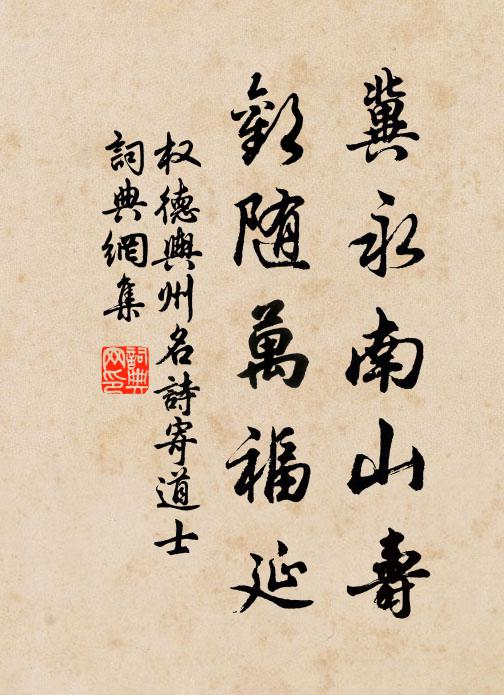 冀永南山壽
歡随萬福延
权德輿州名詩寄道士
詞典網集
詞典網印